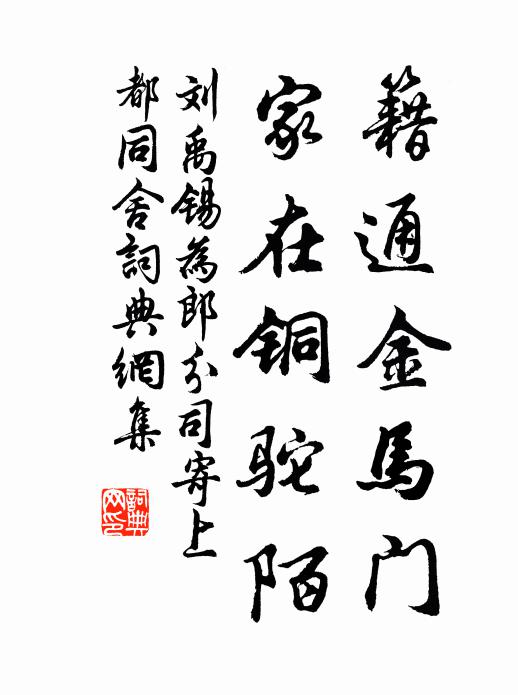 籍通金馬门
家在铜駝陌
刘禹锡為郎分司寄上
都同舍詞典網集
詞典网印